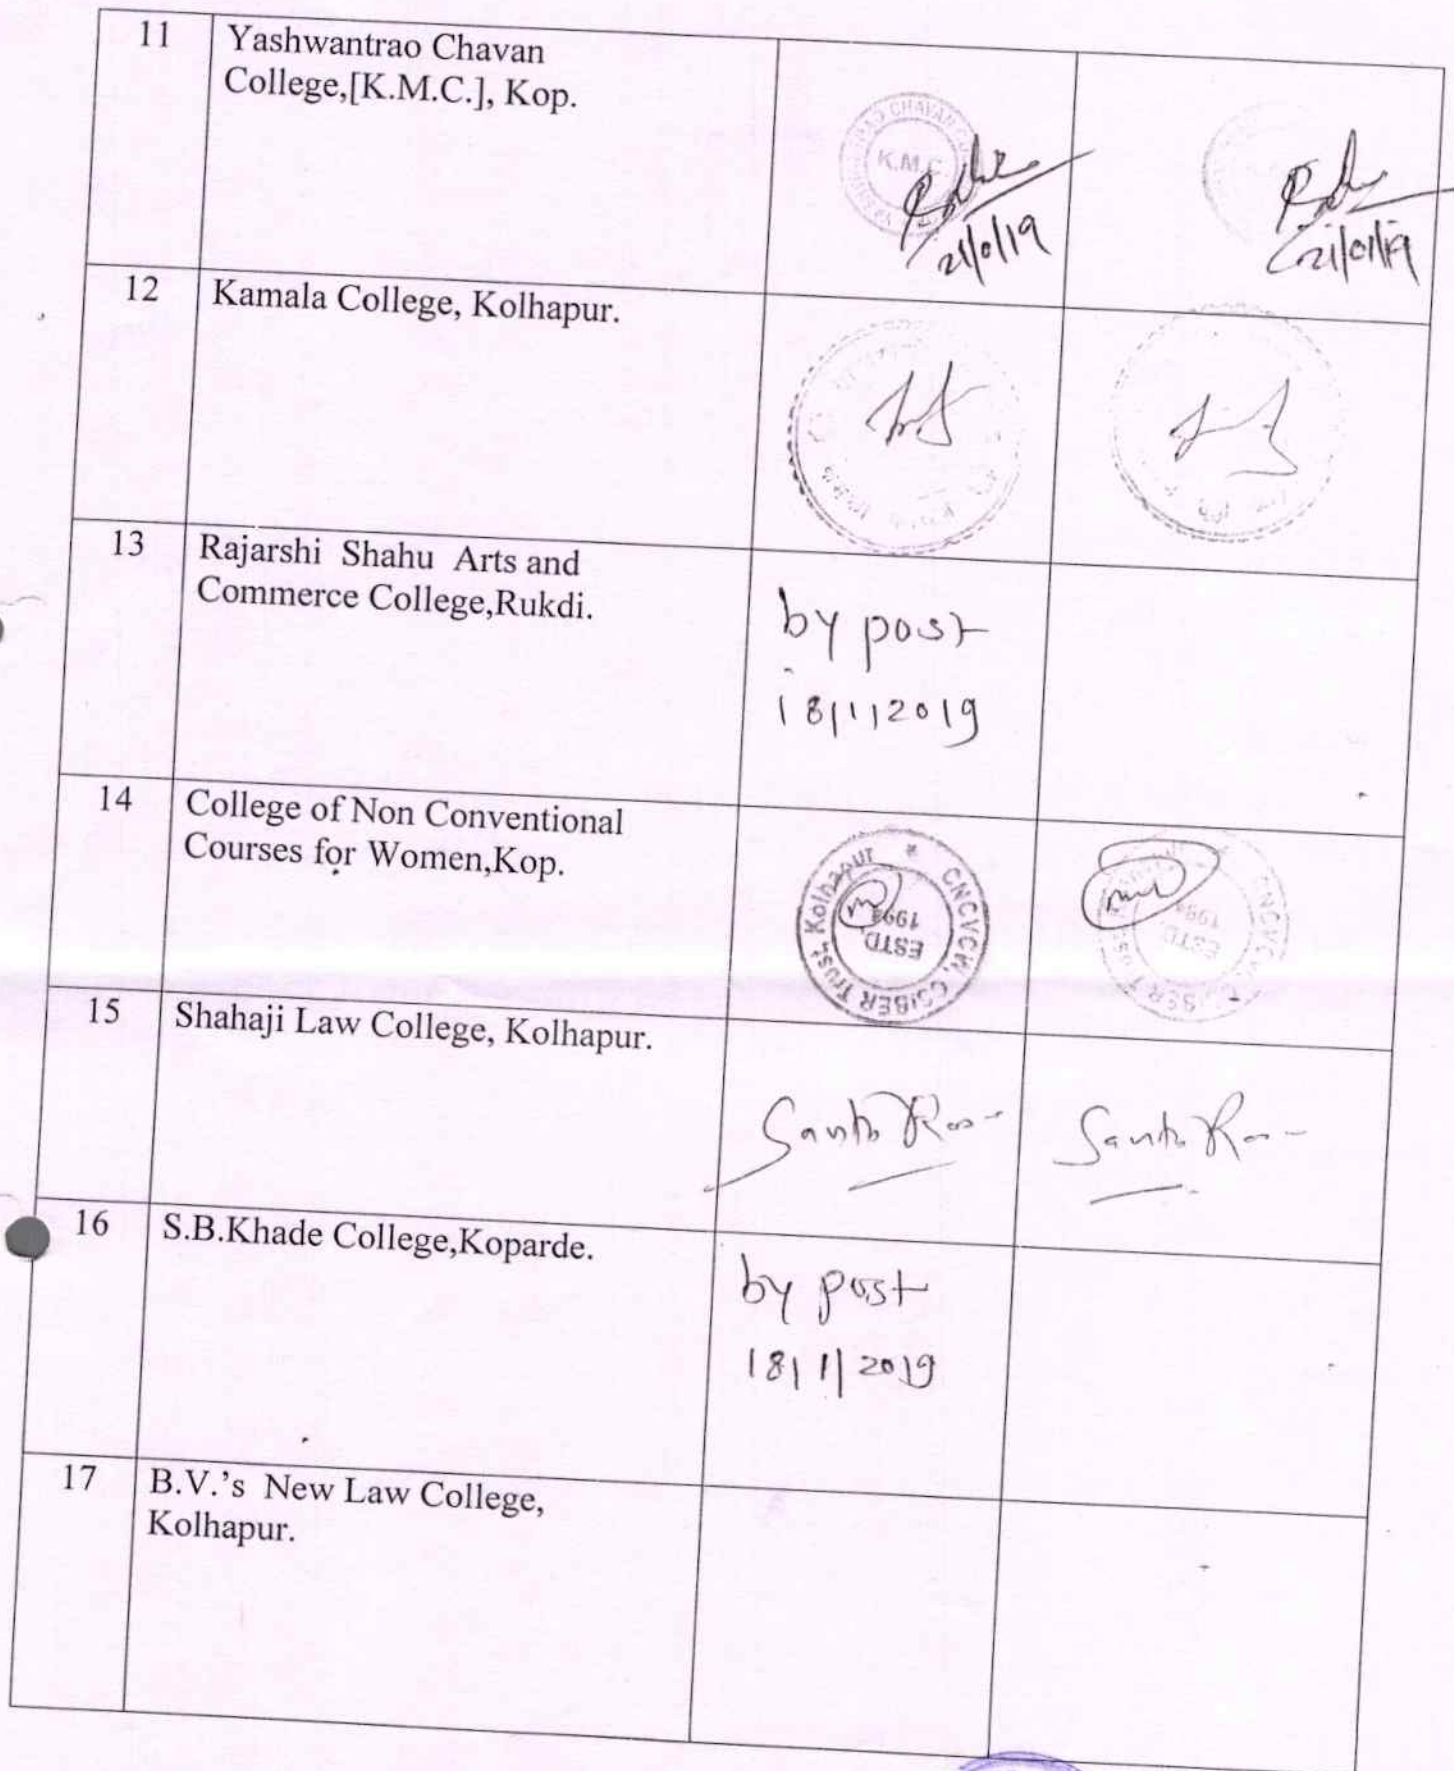 11
Yashwantrao Chavan
College,[K.M.C.], Kop.
K.M.C.
21/0/19
21/01/19
12
Kamala College, Kolhapur.
13
Rajarshi Shahu Arts and
Commerce College,Rukdi.
by post
18/1/2019
14
College of Non Conventional
Courses for Women,Kop.
CNCVCW, CSIBER Trust, Kolhapur *
ESTD
199
ESTD
199
15
Shahaji Law College, Kolhapur.
16
S.B.Khade College,Koparde.
by post
18/1/2019
17
B.V.'s New Law College,
Kolhapur.